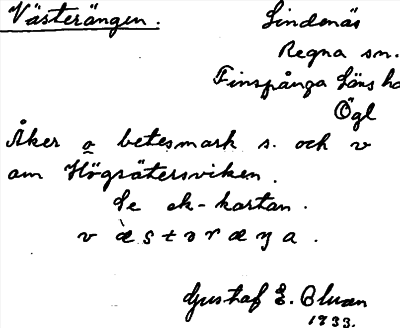 Västerängen.
Lindenäs
Regna sn.
Finspånga läns hd
Ögl
Åker o betesmark s. och v
om Högsätersviken.
Se ek-kartan.
v æ̀ s t ə r æ ŋ a .
Gustaf E. Bluan
1933.